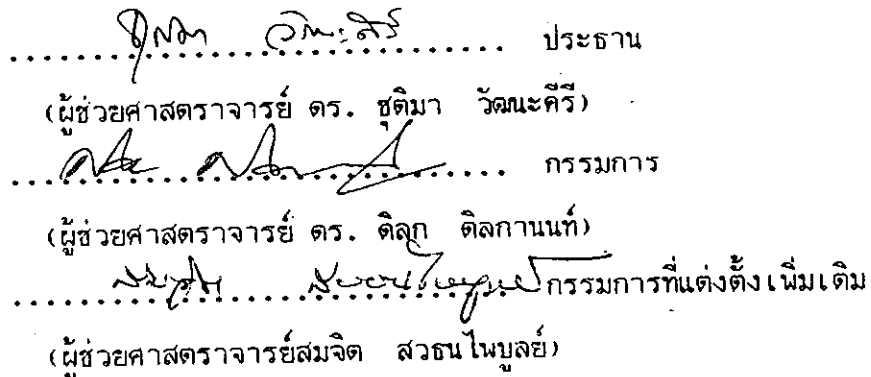 ........................................ ประธาน
(ผู้ช่วยศาสตราจารย์ ดร. ชุติมา วัฒนะคีรี)
........................................ กรรมการ
(ผู้ช่วยศาสตราจารย์ ดร. ดิลก ดิลกานนท์)
........................................ กรรมการที่แต่งตั้งเพิ่มเติม
(ผู้ช่วยศาสตราจารย์สมจิต สวธนไพบูลย์)